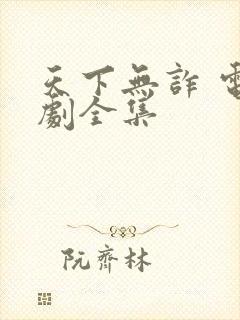 天下無詐 電
劇全集
阮齊林